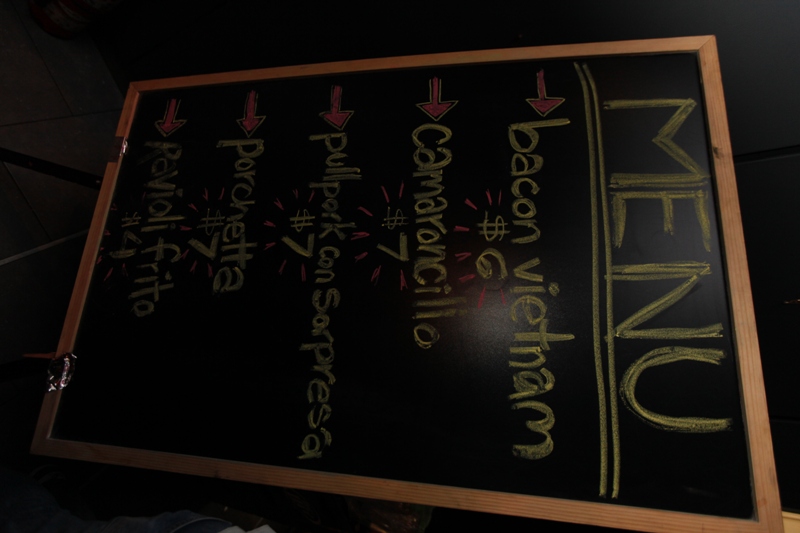 MENU
bacon vietnam
$6
camaroncillo
$7
pullpork con sorpresa
$7
porchetta
$7
Ravioli frito
$4